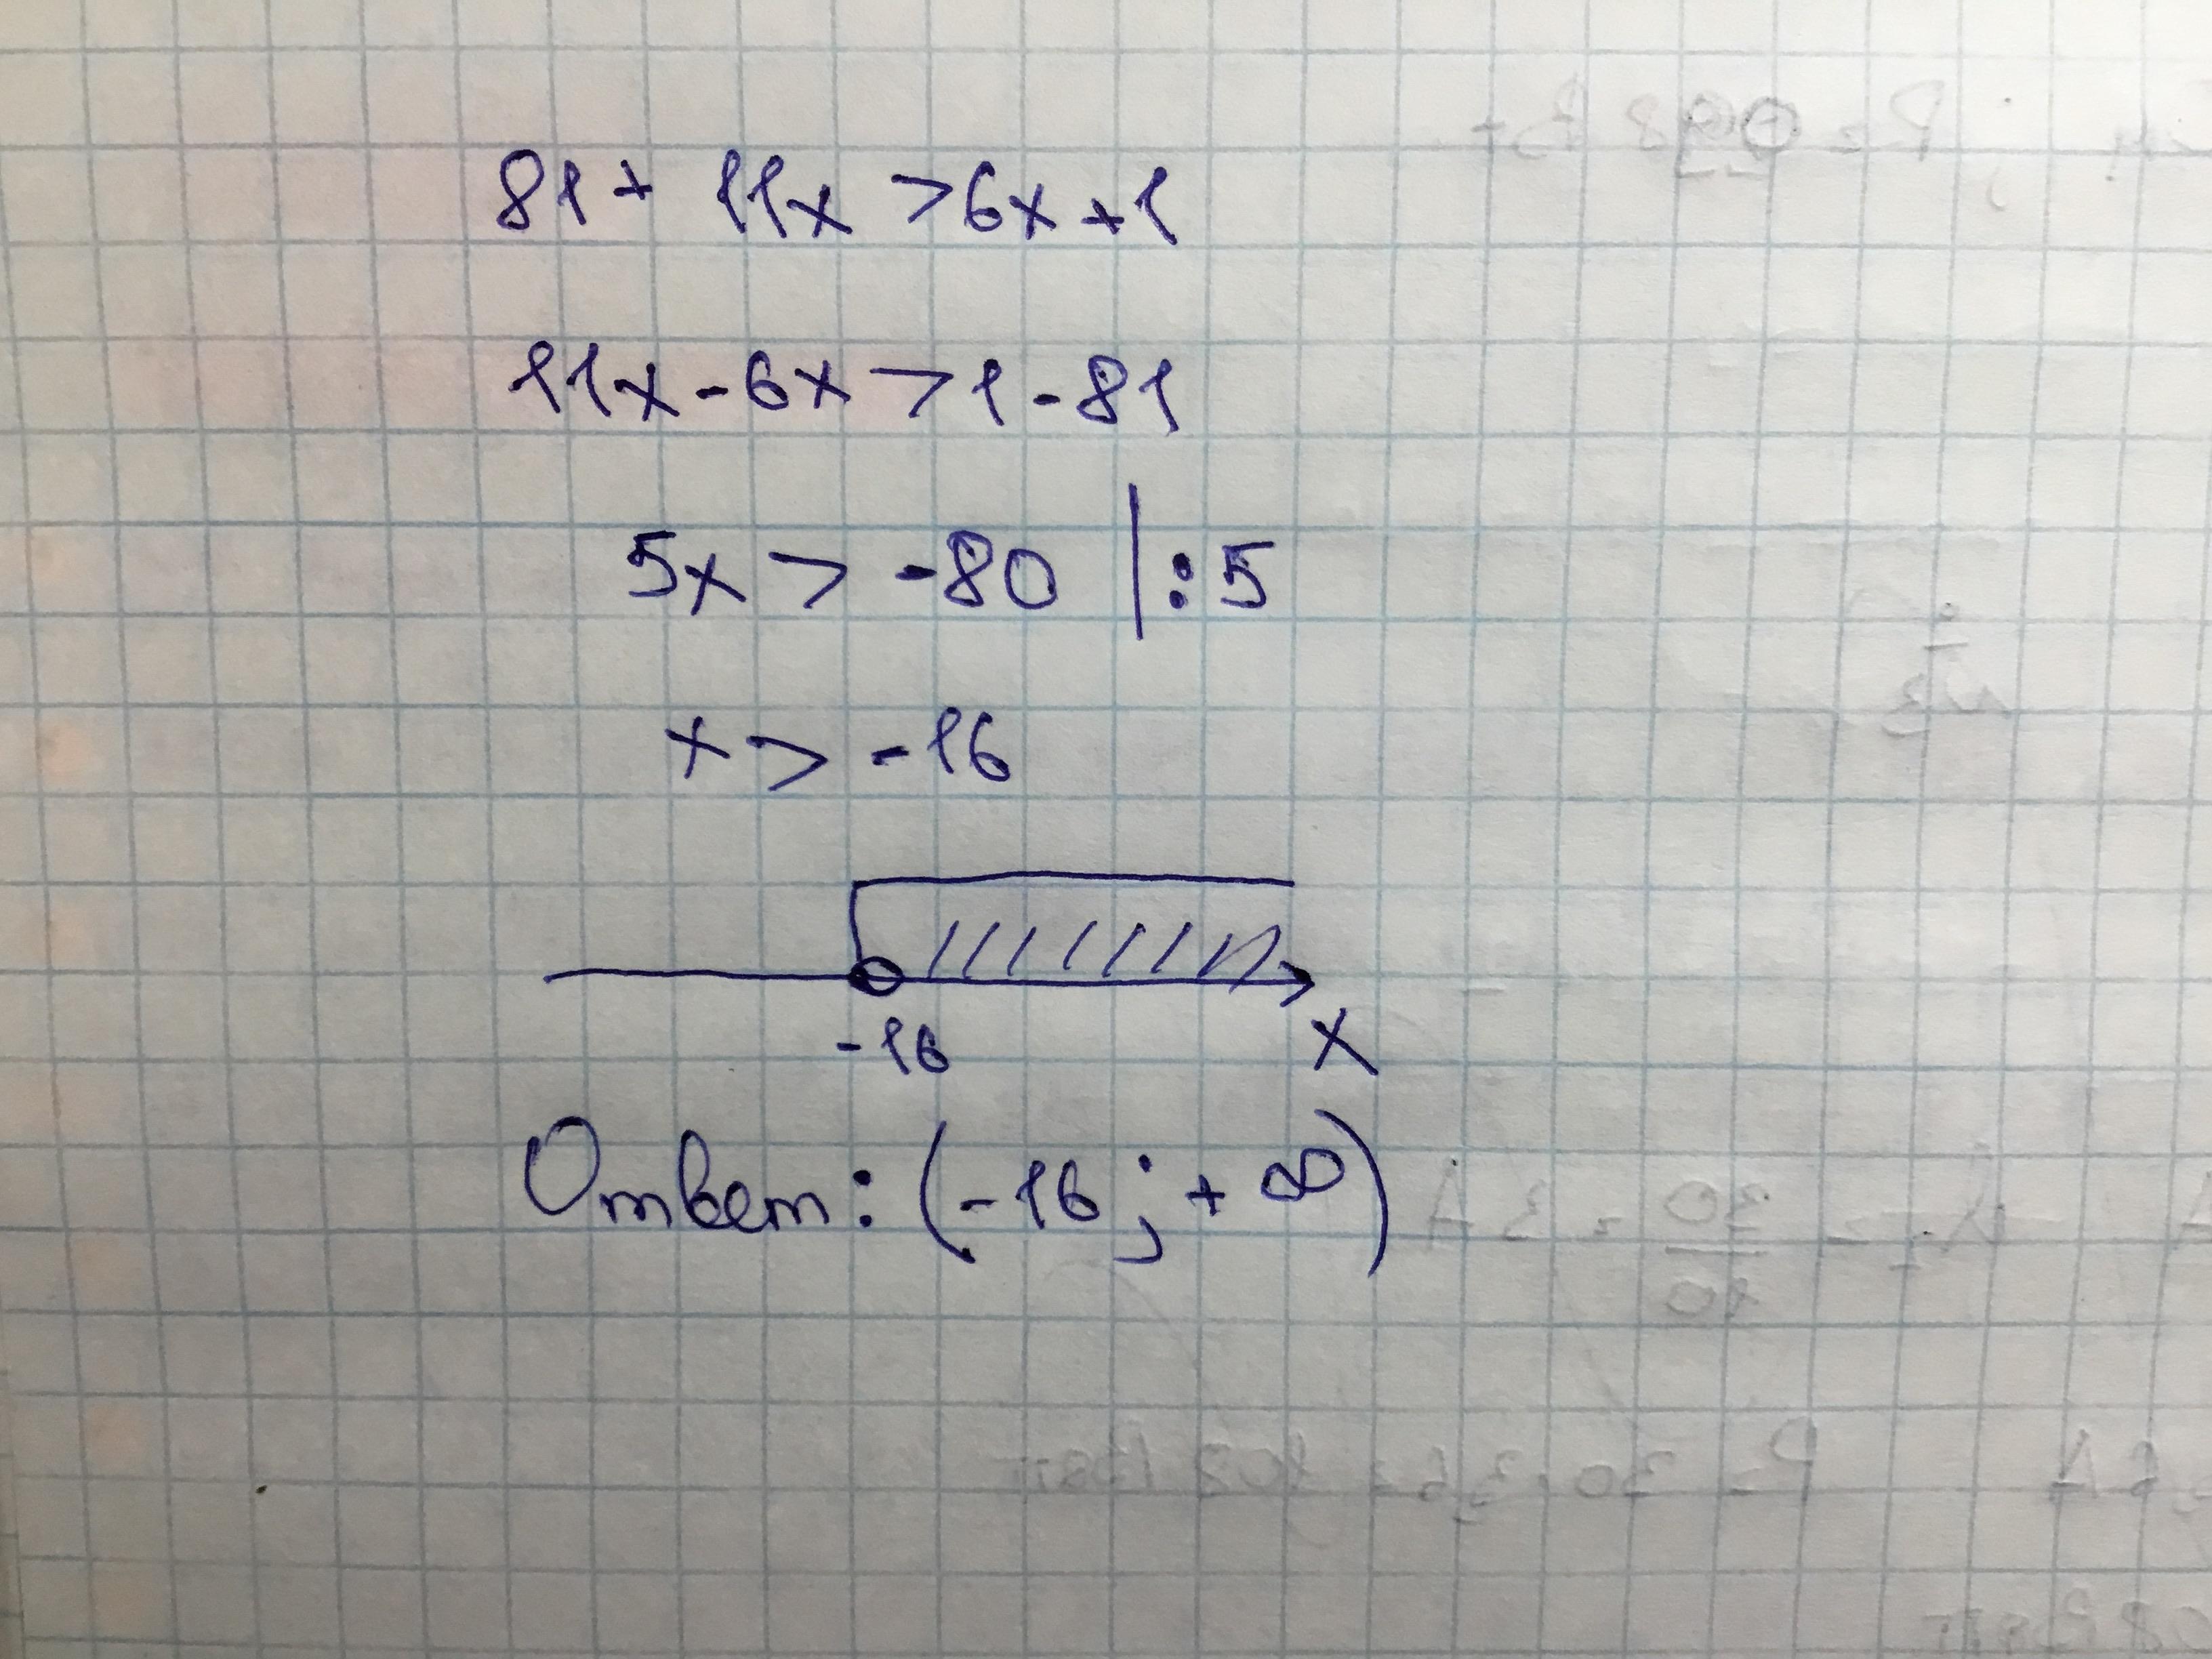 81 + 11x > 6x + 1
11x - 6x > 1 - 81
5x > -80 | : 5
x > -16
-16 x
Ответ: (-16 ; + ∞)